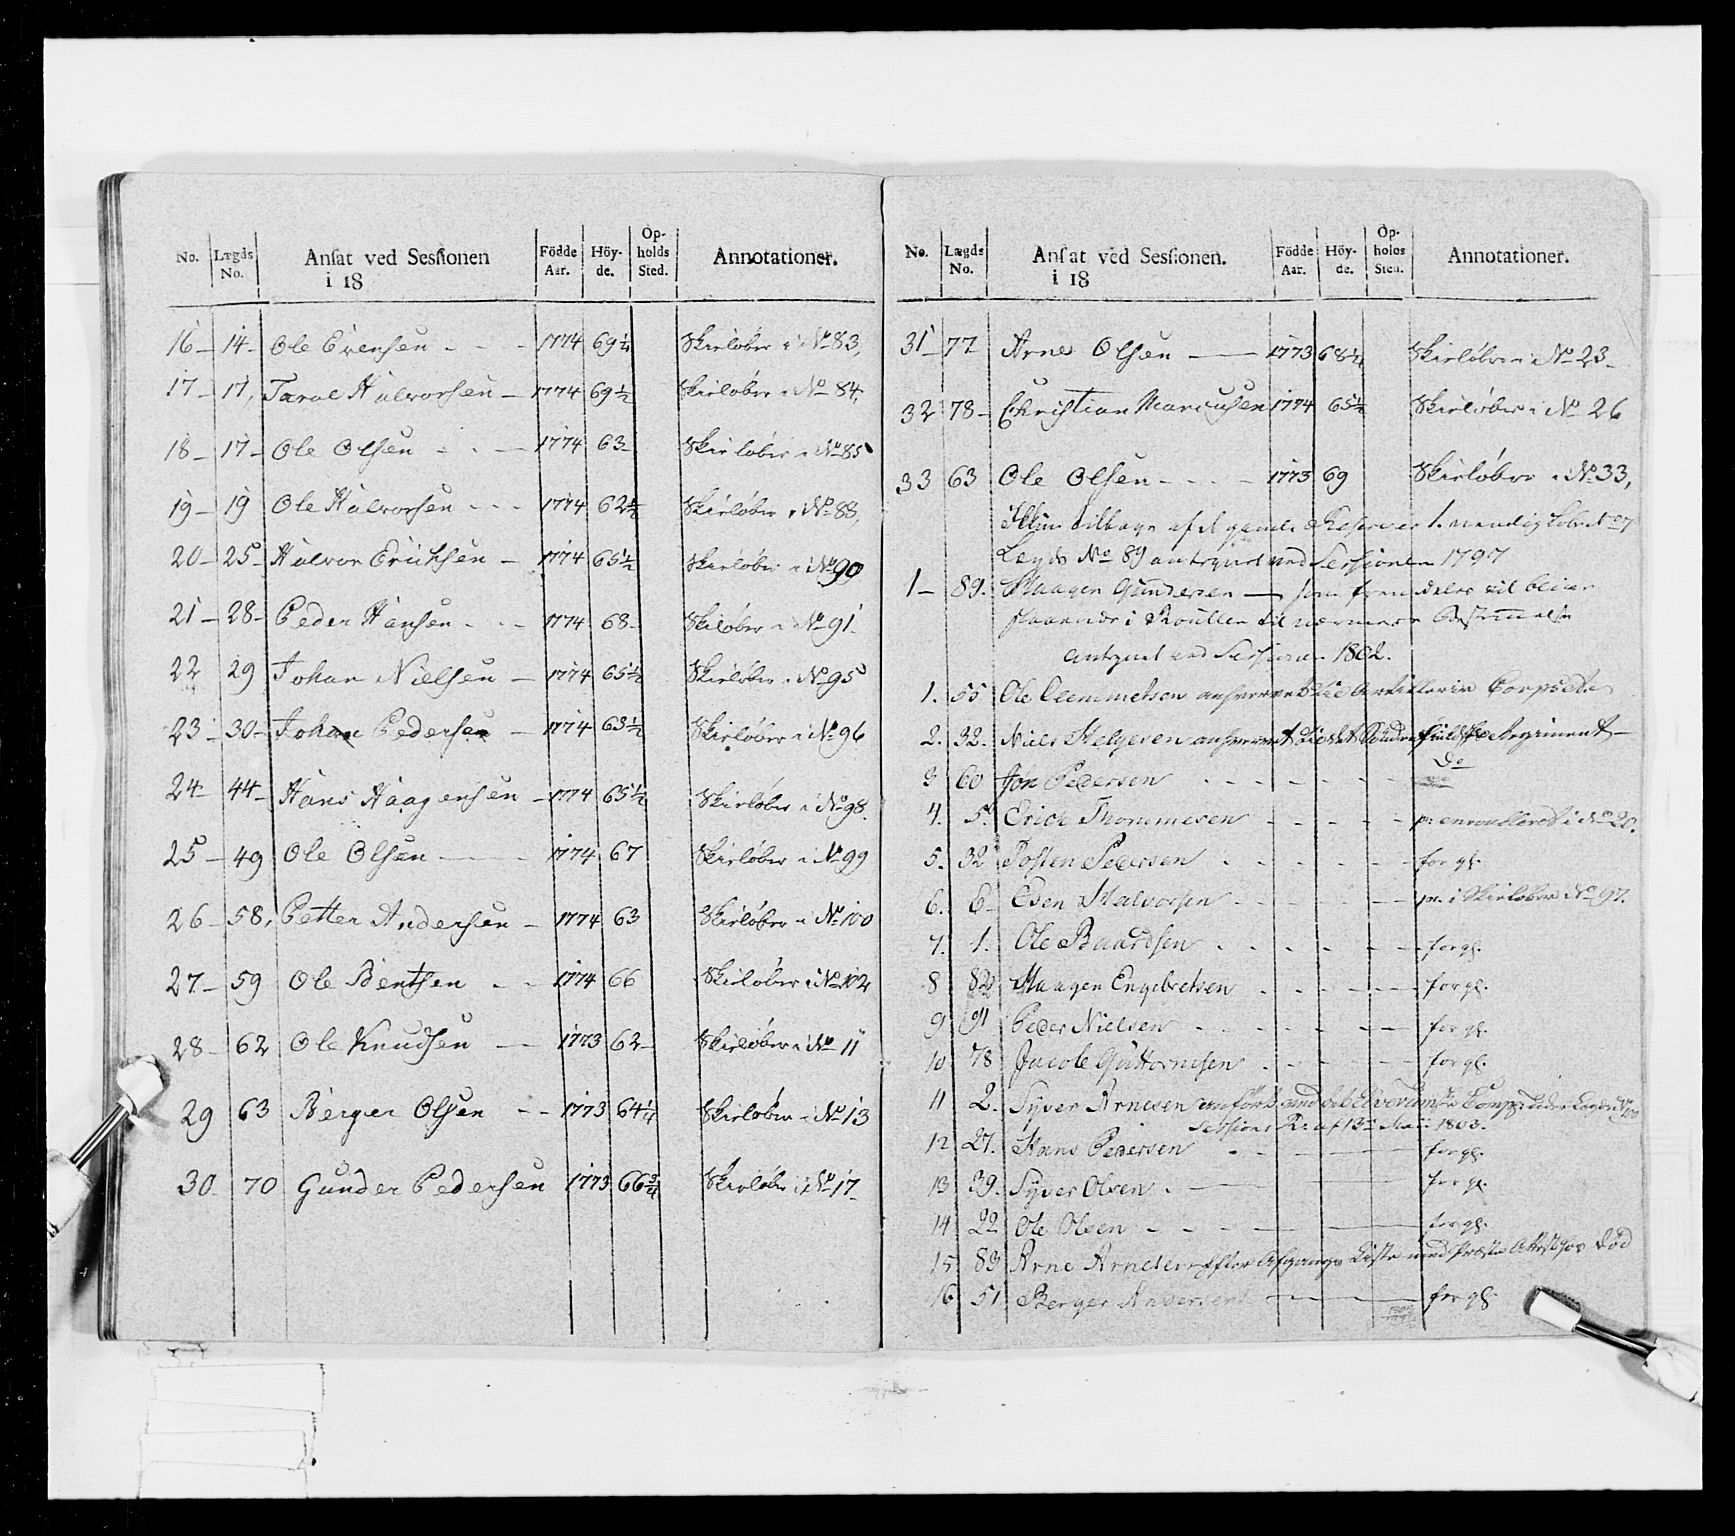 No. Lægds No. Ansat ved Sessionen i 18 Födde Aar. Höyde. Opholds Sted. Annotationer.
16 14 Ole Evensen 1774 69¼ Skieløber i No 83,
17 17, Taral Halvorsen 1774 69½ Skieløber i No 84,
18 17 Ole Olsen 1774 63 Skieløber i No 85
19 19 Ole Halvorsen 1774 62½ Skieløber i No 88,
20 25 Halvor Erichsen 1774 65½ Skieløber i No 90
21 28 Peder Hansen 1774 68 Skiløber i No 91
22 29 Johan Nielsen 1774 65½ Skieløber i No 95
23 30 Johan Pedersen 1774 63½ Skieløber i No 96
24 44 Hans Haagensen 1774 65½ Skieløber i No 98.
25 49 Ole Olsen 1774 67 Skieløber i No 99
26 58, Petter Andersen 1774 63 Skieløber i No 100
27 59 Ole Bentsen 1774 66 Skieløber i No 102
28 62 Ole Knudsen 1773 62 Skieløber i No 11
29 63 Berger Olsen 1773 64¼ Skieløber i No 13
30 70 Gunder Pedersen 1773 66¾ Skieløber i No 17
No. Lægds No. Ansat ved Sessionen. i 18 Födde Aar. Höyde. Opholds Sted. Annotationer.
31 77 Arne Olsen 1773 68¼ Skieløber i No 23
32 78 Christian Marcusen 1774 65½ Skieløber i No 26
33 63 Ole Olsen 1773 69 Skieløber i No 33,
tilbage af d gamle Reserver 1.
Lægds No 89 antegnet ved Sessionen 1797
1 89. Haagen Gundersen som fremdeles vil bliv
staaende i Roullen til nærmere Bestemmelse
antegnet ved Sessionen 1802.
1. 55 Ole Clemmetsen Artillerie Corpset
2. 32. Niels Helgesen Søndenfieldske Regiment
3 60 Jon Pedersen Do
4. 5. Erich Thommesen enroulleret i No 20.
5. 32 Josten Pedersen for gl.
6. 6 Eden Halvorsen i Skieløber No 97.
7. 1. Ole Baardsen for gl.
8 82 Haagen Engebretsen for gl.
9 91 Peder Nielsen for gl.
10 78 Jacob Guttormsen for gl.
11 2. Syver Arnesen anført ved det Elverumske Comp: under Lægds No 100
Sessions Pr: af 13de Mai 1803.
12 27. Hans Pedersen for gl.
13 39. Syver Olsen for gl.
14 22 Ole Olsen for gl.
15 83 Arne Arnesen efter Afgangs Liste med Præste Attest for død
16 51 Berger Andersen for gl.